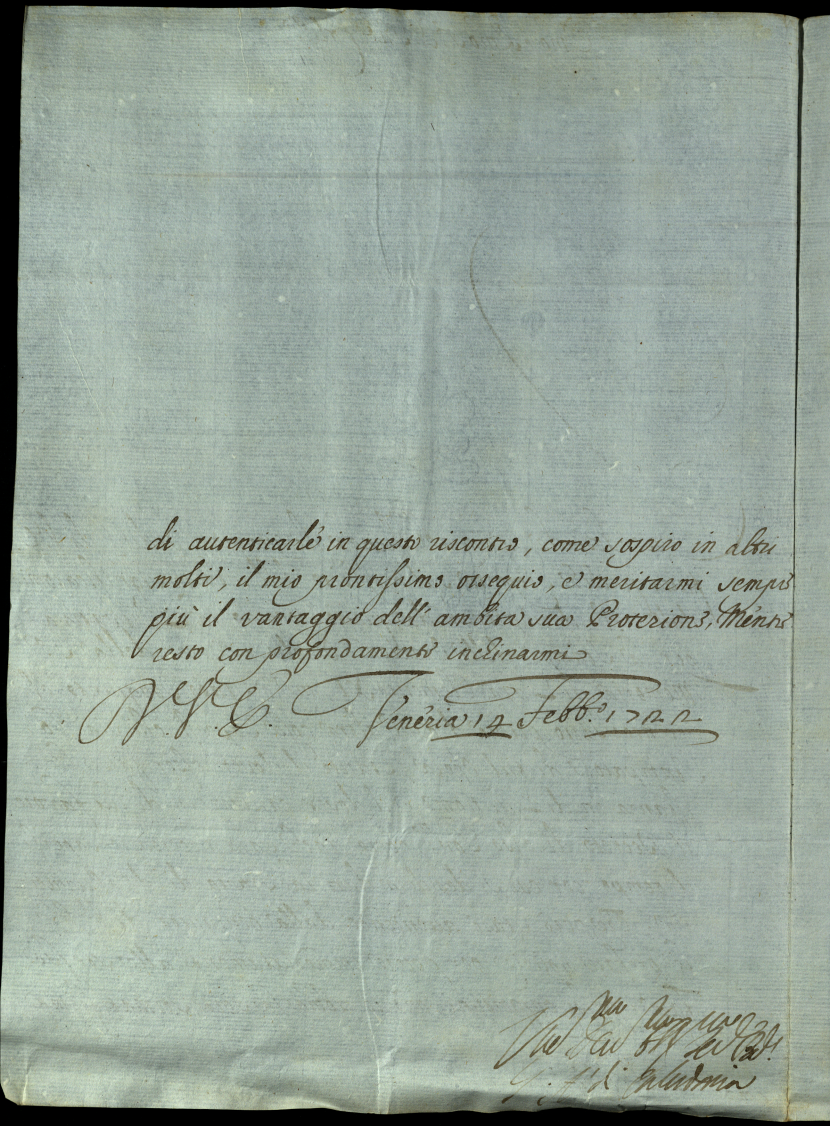 di autenticarle in questo riscontro, come sospiro in altri
molti, il mio prontissimo ossequio, e meritarmi sempre
più il vantaggio dell' ambita sua Protezione, Mentre
resto con profondamente inchinarmi
V. S. E. Venezia 14 Febb.º 1722